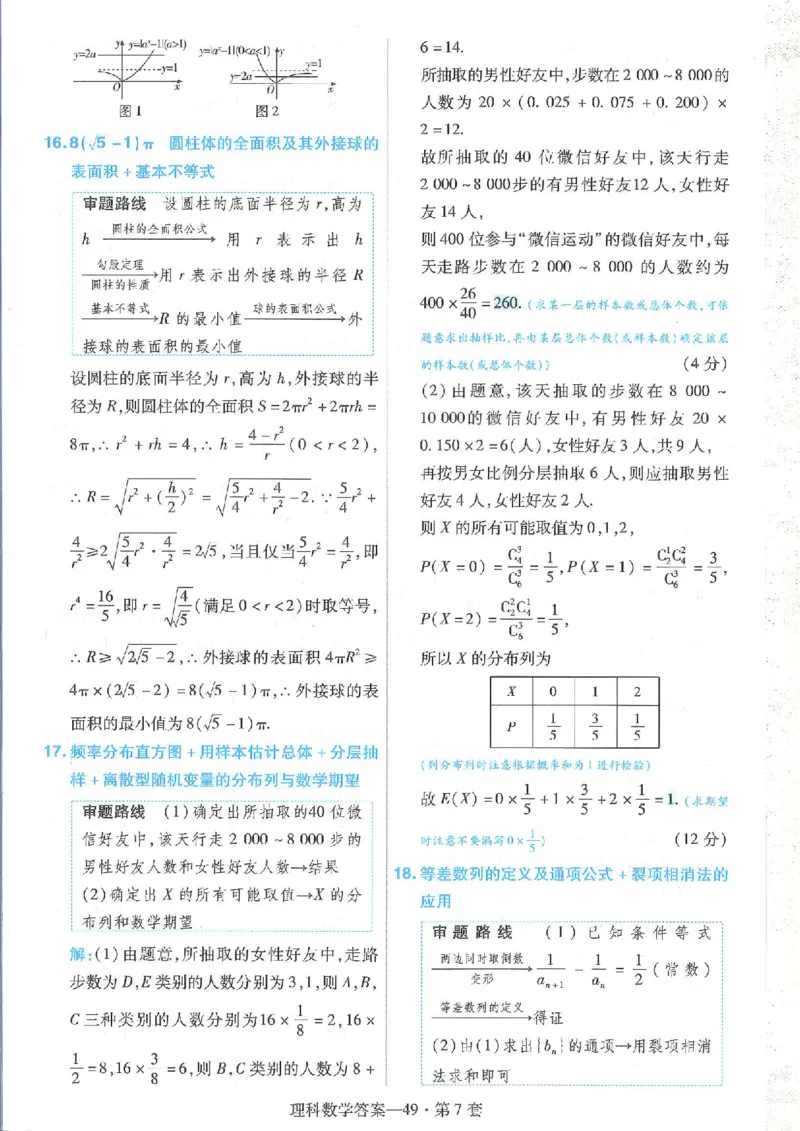 y=2a
y
y=|aˣ-1|(a>1)
y=1
O
x
图1
y=|aˣ-1|(0<a<1)
y
y=1
y=2a
O
x
图2
16.8(√5-1)π 圆柱体的全面积及其外接球的
表面积+基本不等式
审题路线 设圆柱的底面半径为r,高为
h 圆柱的全面积公式→ 用 r 表示出 h
勾股定理 圆柱的性质→用r表示出外接球的半径R
基本不等式→R的最小值 球的表面积公式→外
接球的表面积的最小值
设圆柱的底面半径为r,高为h,外接球的半
径为R,则圆柱体的全面积S=2πr²+2πrh=
8π,∴r²+rh=4,∴h=(4-r²)/r(0<r<2),
∴R=√(r²+(h/2)²)=√(5/4r²+4/r²-2).∵5/4r²+
4/r²≥2√(5/4r²·4/r²)=2√5,当且仅当5/4r²=4/r²,即
r⁴=16/5,即r=√(4/√5)(满足0<r<2)时取等号,
∴R≥√(2√5-2),∴外接球的表面积4πR²≥
4π×(2√5-2)=8(√5-1)π,∴外接球的表
面积的最小值为8(√5-1)π.
17.频率分布直方图+用样本估计总体+分层抽
样+离散型随机变量的分布列与数学期望
审题路线 (1)确定出所抽取的40位微
信好友中,该天行走2 000~8 000步的
男性好友人数和女性好友人数→结果
(2)确定出X的所有可能取值→X的分
布列和数学期望
解:(1)由题意,所抽取的女性好友中,走路
步数为D,E类别的人数分别为3,1,则A,B,
C三种类别的人数分别为16×1/8=2,16×
1/2=8,16×3/8=6,则B,C类别的人数为8+
6=14.
所抽取的男性好友中,步数在2 000~8 000的
人数为20×(0.025+0.075+0.200)×
2=12.
故所抽取的40位微信好友中,该天行走
2 000~8 000步的有男性好友12人,女性好
友14人,
则400位参与“微信运动”的微信好友中,每
天走路步数在2 000~8 000的人数约为
400×26/40=260.(求某一层的样本数或总体个数,可依
题意求出抽样比,再由某层总体个数(或样本数)确定该层
的样本数(或总体个数)) (4分)
(2)由题意,该天抽取的步数在8 000~
10 000的微信好友中,有男性好友20×
0.150×2=6(人),女性好友3人,共9人,
再按男女比例分层抽取6人,则应抽取男性
好友4人,女性好友2人.
则X的所有可能取值为0,1,2,
P(X=0)=C₄³/C₆³=1/5,P(X=1)=C₂¹C₄²/C₆³=3/5,
P(X=2)=C₂²C₄¹/C₆³=1/5,
所以X的分布列为
X 0 1 2
P 1/5 3/5 1/5
(列分布列时注意根据概率和为1进行检验)
故E(X)=0×1/5+1×3/5+2×1/5=1.(求期望
时注意不要漏写0×1/5) (12分)
18.等差数列的定义及通项公式+裂项相消法的
应用
审题路线 (1)已知条件等式
两边同时取倒数 变形→1/aₙ₊₁-1/aₙ=1/2(常数)
等差数列的定义→得证
(2)由(1)求出{bₙ}的通项→用裂项相消
法求和即可
理科数学答案—49·第7套